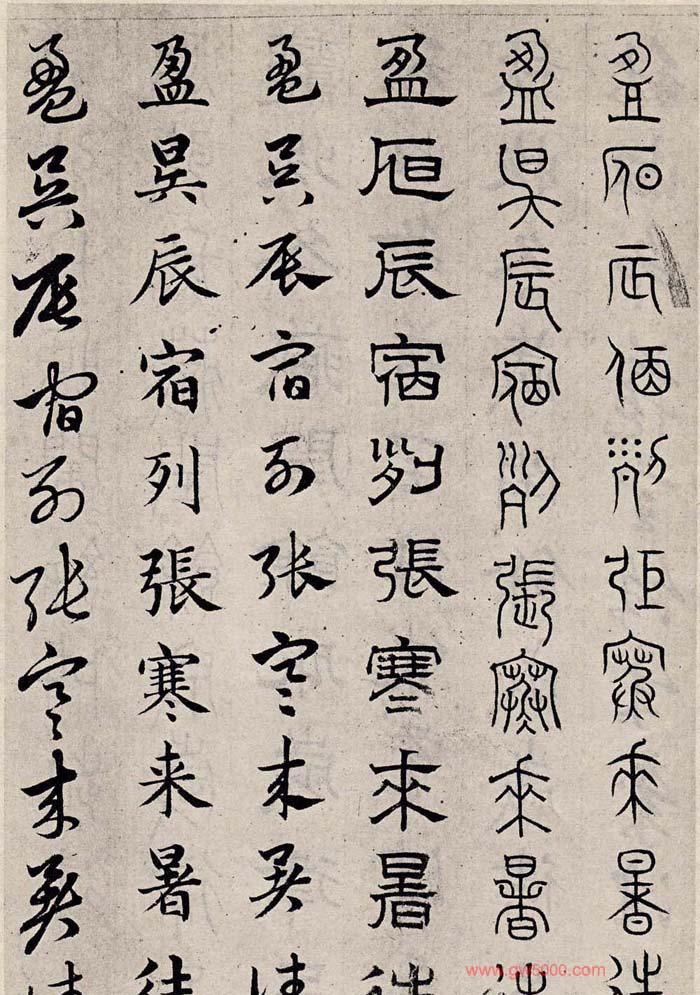 盈昃辰宿列張寒來暑往
盈昃辰宿列張寒來暑往
盈昃辰宿列張寒來暑往
盈昃辰宿列张寒来暑往
盈昃辰宿列張寒来暑往
盈昃辰宿列张寒来暑往
www.gw5000.com